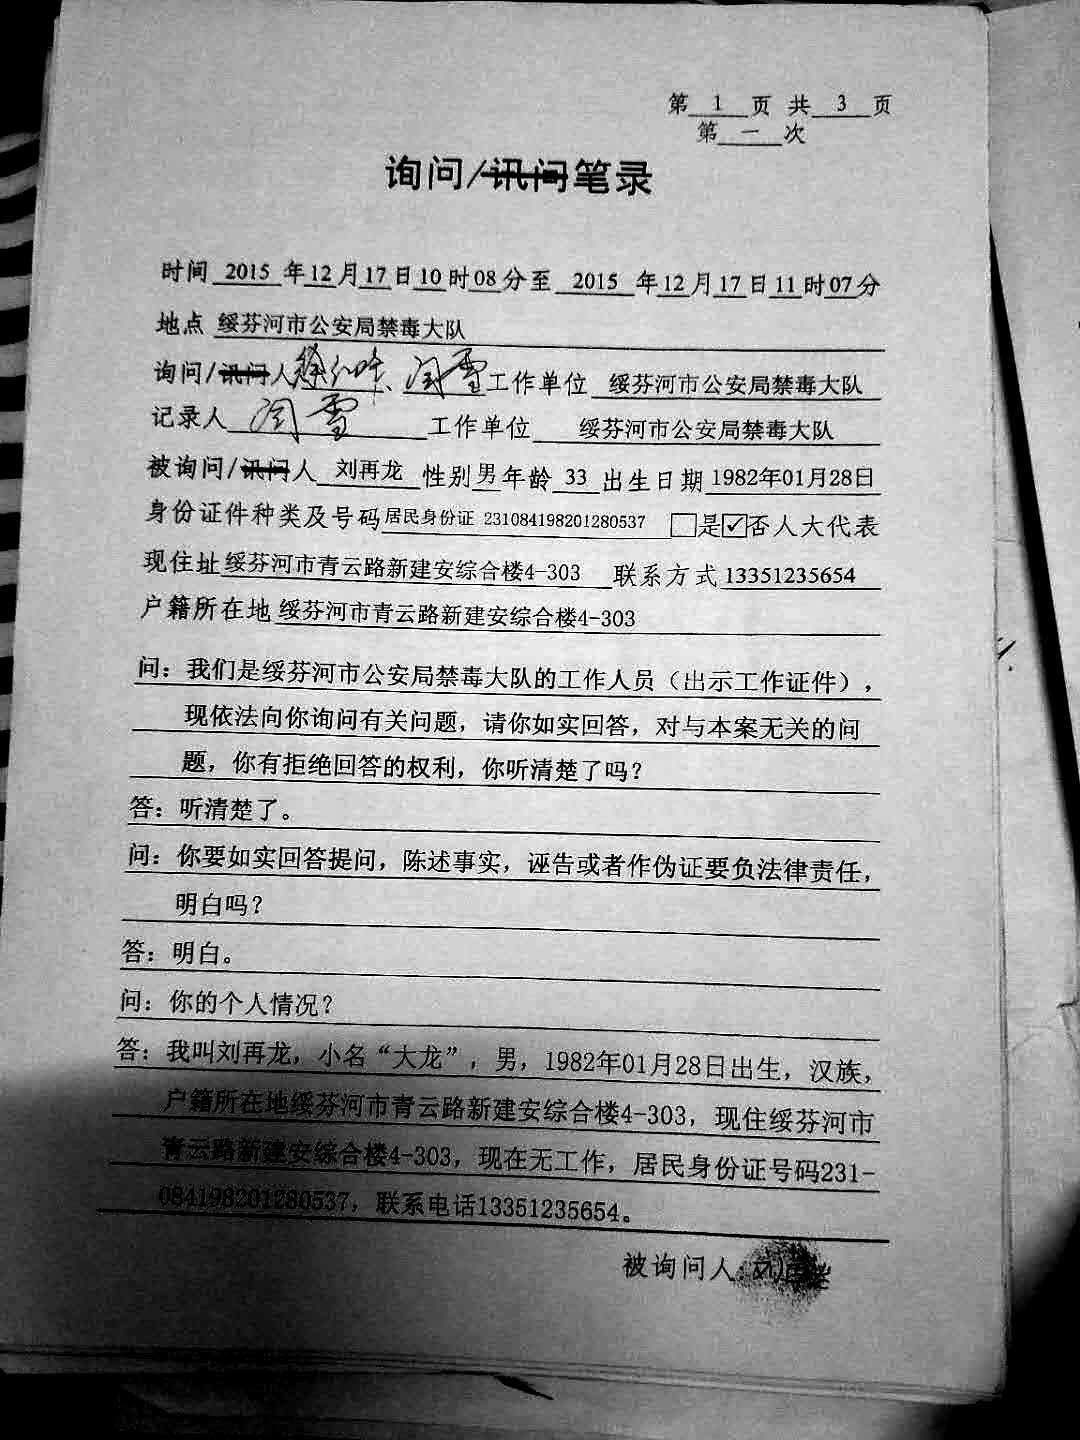 第 1 页 共 3 页
第 一 次
询问/讯问笔录
时间 2015 年12月17日10时08分至 2015 年12月17日11时07分
地点 绥芬河市公安局禁毒大队
询问/讯问人 、闫雪工作单位 绥芬河市公安局禁毒大队
记录人 闫雪 工作单位 绥芬河市公安局禁毒大队
被询问/讯问人 刘再龙 性别男年龄 33 出生日期1982年01月28日
身份证件种类及号码居民身份证 231084198201280537 □是☑否人大代表
现住址绥芬河市青云路新建安综合楼4-303 联系方式13351235654
户籍所在地 绥芬河市青云路新建安综合楼4-303
问：我们是绥芬河市公安局禁毒大队的工作人员（出示工作证件），
现依法向你询问有关问题，请你如实回答，对与本案无关的问
题，你有拒绝回答的权利，你听清楚了吗？
答：听清楚了。
问：你要如实回答提问，陈述事实，诬告或者作伪证要负法律责任，
明白吗？
答：明白。
问：你的个人情况？
答：我叫刘再龙，小名“大龙”，男，1982年01月28日出生，汉族，
户籍所在地绥芬河市青云路新建安综合楼4-303，现住绥芬河市
青云路新建安综合楼4-303，现在无工作，居民身份证号码231-
084198201280537，联系电话13351235654。
被询问人